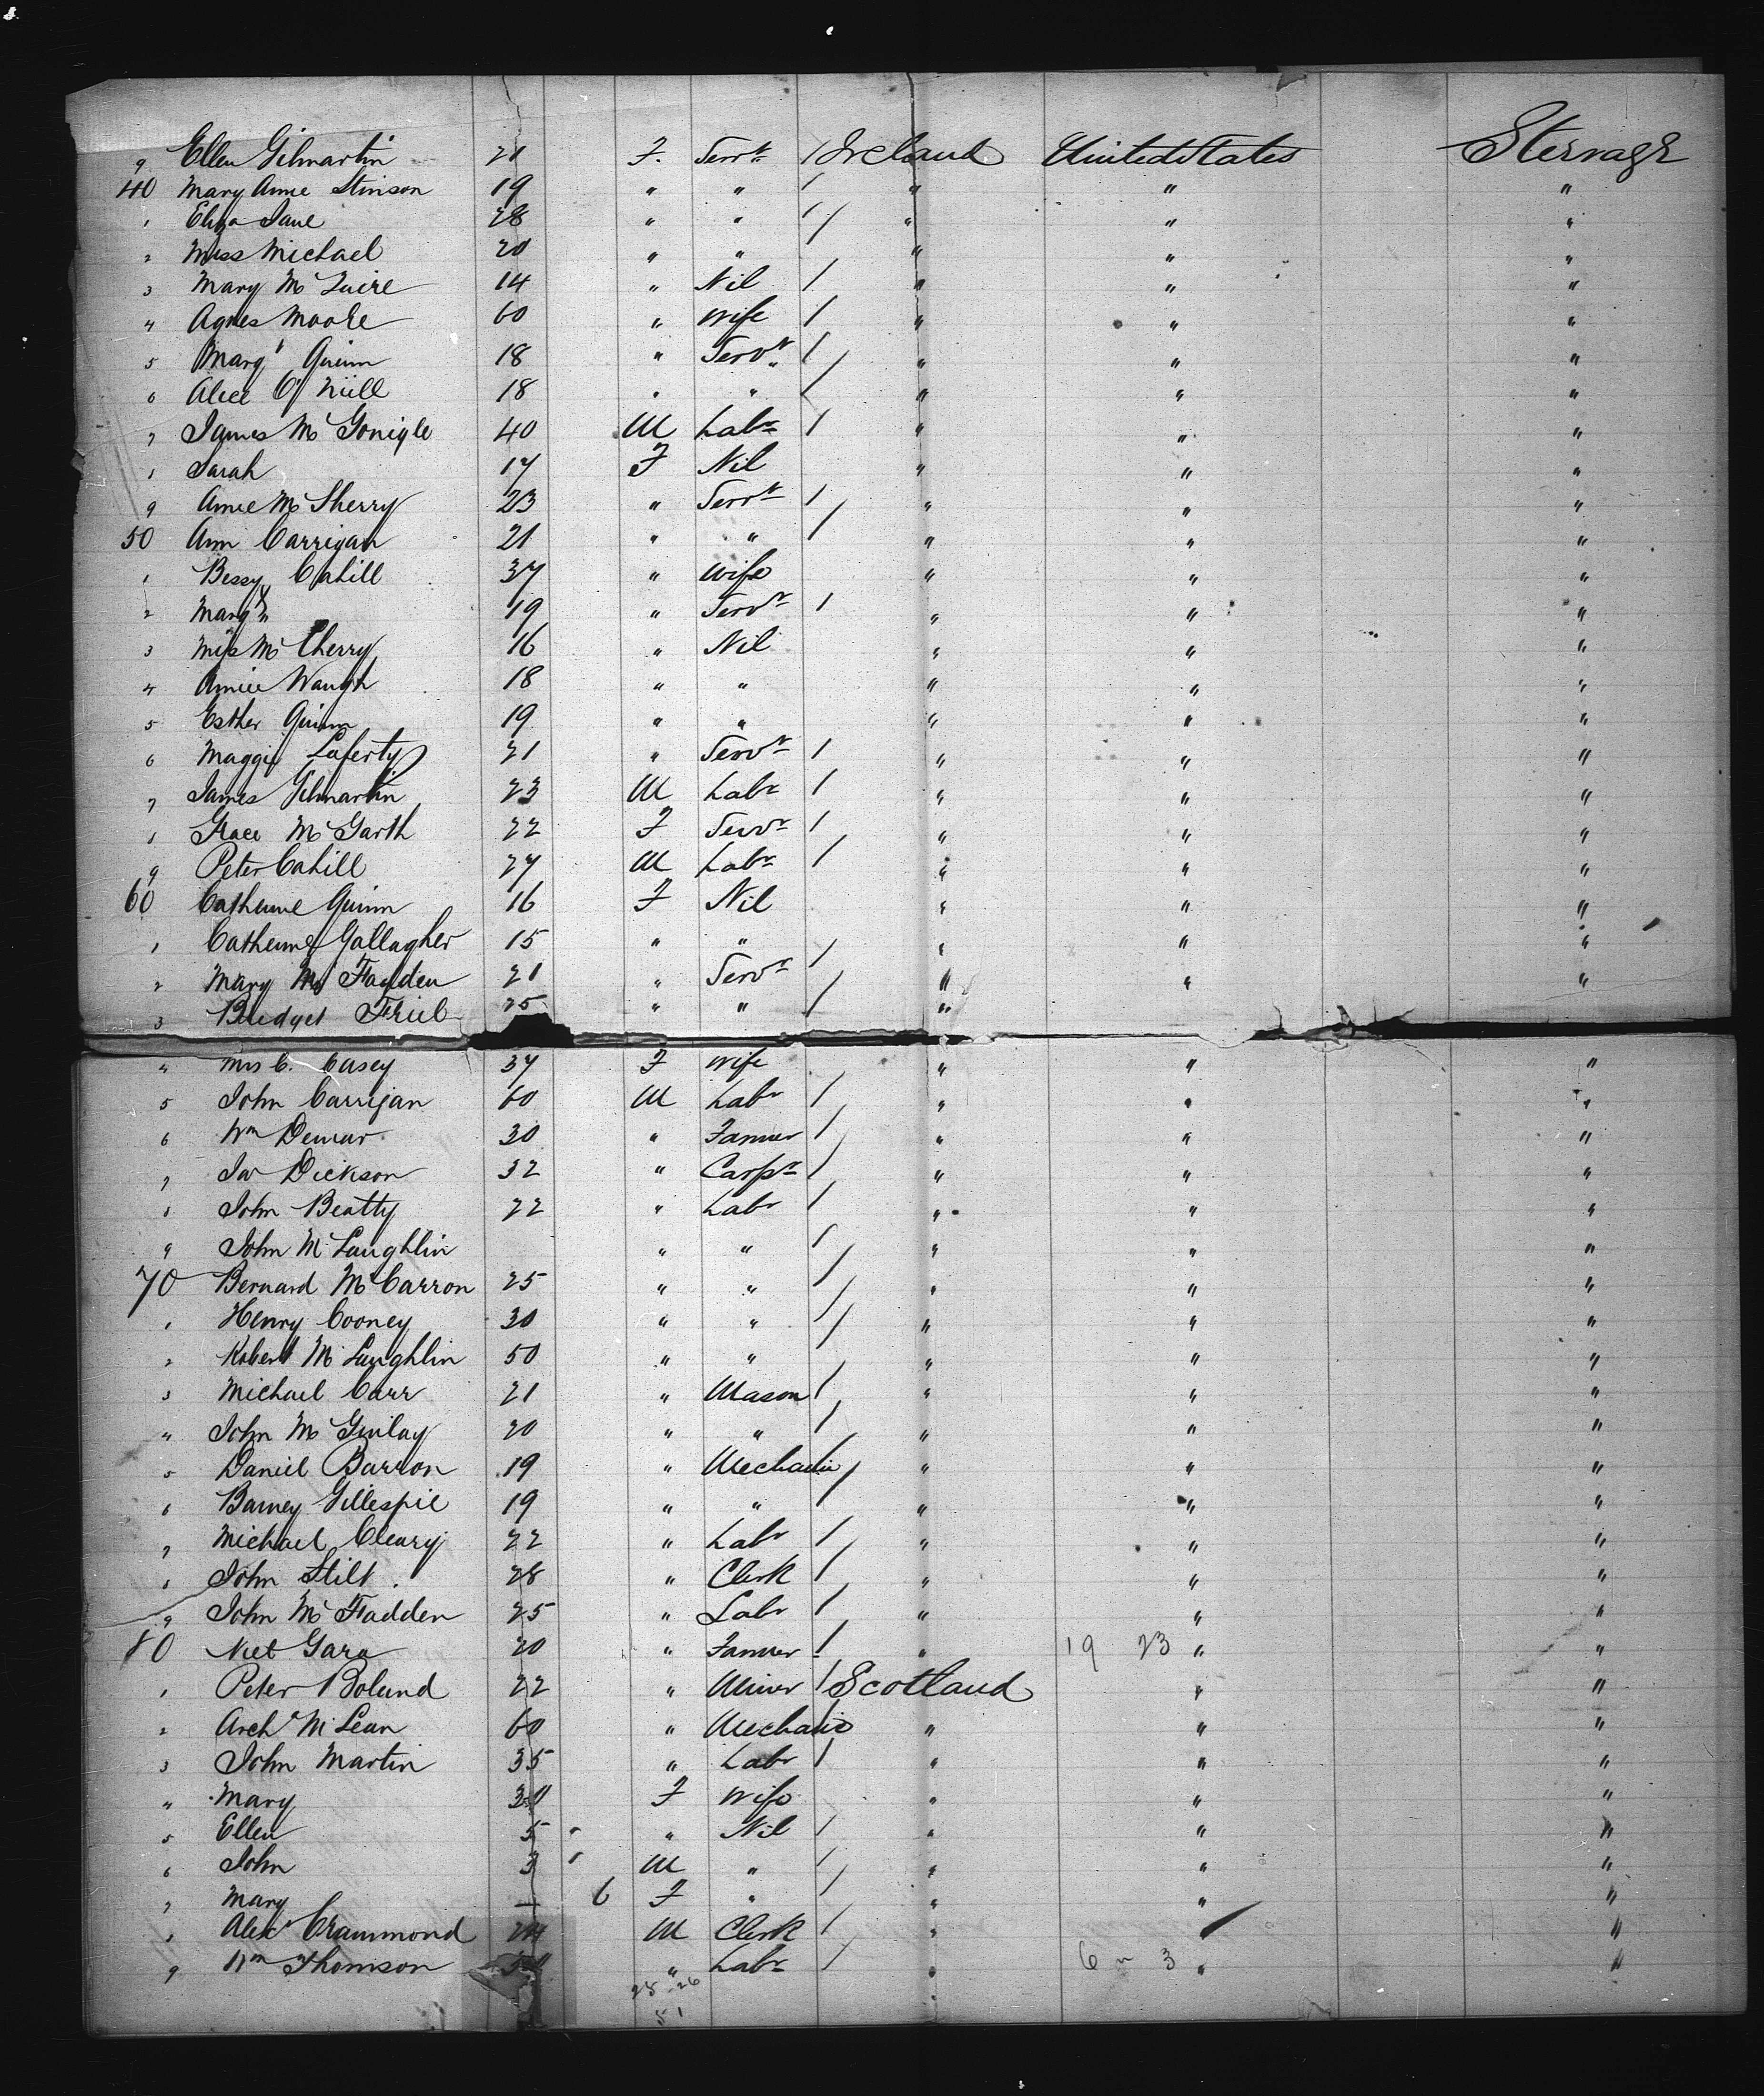 9 Ellen Gilmartin 21 F. Servt / Ireland United States Steerage
40 Mary Anne Stinson 19 " " / " " "
1 Eliza Jane 28 " " / " " "
2 Miss Michael 20 " " / " " "
3 Mary McGuire 14 " Nil / " " "
4 Agnes Moore 60 " Wife / " " "
5 Margt Quinn 18 " Servt / " " "
6 Alice O'Neill 18 " " / " " "
7 James McGonigle 40 M Labr / " " "
8 Sarah 17 F Nil " " "
9 Annie McSherry 23 " Servt / " " "
50 Ann Carrigan 21 " " / " " "
1 Bessy Cahill 37 " Wife " " "
2 Margt " 19 " Servt / " " "
3 Miss McCherry 16 " Nil " " "
4 Annie Waugh 18 " " " " "
5 Esther Quinn 19 " " " " "
6 Maggie Laferty 21 " Servt / " " "
7 James Gilmartin 23 M Labr / " " "
8 Grace McGarth 22 F Servt / " " "
9 Peter Cahill 27 M Labr / " " "
60 Catherine Quinn 16 F Nil " " "
1 Catherine Gallagher 15 " " / " " "
2 Mary McFadden 21 " Servt / " " "
3 Bridget Friel 25 " " / "
4 Mrs C. Casey 37 F Wife " " "
5 John Carrigan 60 M Labr / " " "
6 Wm Demar 30 " Farmer / " " "
7 Jas Dickson 32 " Carpr / " " "
8 John Beatty 22 " Labr / " " "
9 John McLaughlin " " / " " "
70 Bernard McCarron 25 " " / " " "
1 Henry Cooney 30 " " / " " "
2 Robert McLaughlin 50 " " / " " "
3 Michael Carr 21 " Mason / " " "
4 John McGinlay 20 " " / " " "
5 Daniel Barron 19 " Mechanic / " " "
6 Barney Gillespie 19 " " / " " "
7 Michael Cleary 22 " Labr / " " "
8 John Stilt 28 " Clerk / " " "
9 John McFadden 25 " Labr / " " "
80 Niel Gara 20 " Farmer / " 19 23 " "
1 Peter Boland 22 " Miner / Scotland " "
2 Archd McLean 60 " Mechanic " " "
3 John Martin 35 " Labr / " " "
4 Mary 30 F Wife " " "
5 Ellen 5 " Nil / " " "
6 John 3 M " / " " "
7 Mary — 6 F " / " " "
8 Alexr Crammond 24 M Clerk / " " "
9 Wm Thomson " Labr / " 6 3 " "
25 26
51